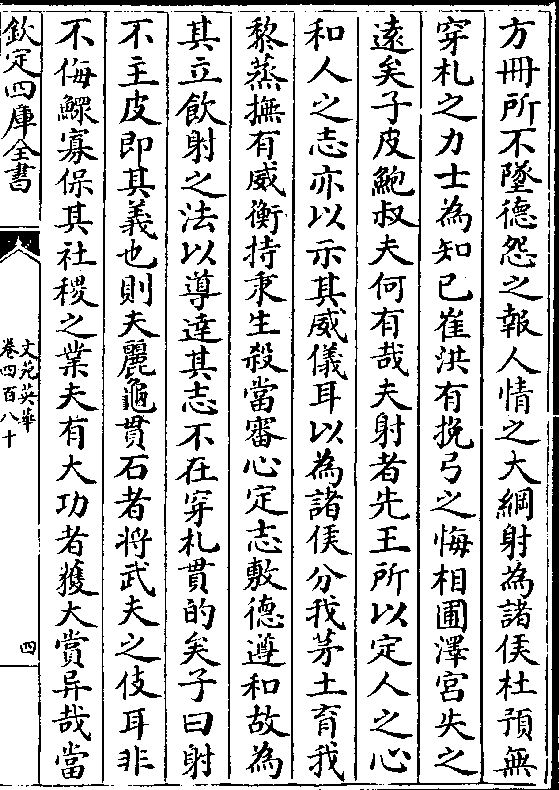 方冊所不墜德怨之報人情之大綱射為諸侯杜預無
穿札之力士為知已崔洪有挽弓之悔相圃澤宫失之
遠矣子皮鮑叔夫何有哉夫射者先王所以定人之心
和人之志亦以示其威儀耳以為諸侯分我茅土育我
黎蒸撫有威衡持秉生殺當審心定志敷德遵和故為
其立飲射之法以導達其志不在穿札貫的矣子曰射
不主皮即其義也則夫麗龜貫石者將武夫之伎耳非
不侮鰥寡保其社稷之業夫有大功者獲大賞异哉當
欽定四庫全書
文苑英華
卷四百八十
四